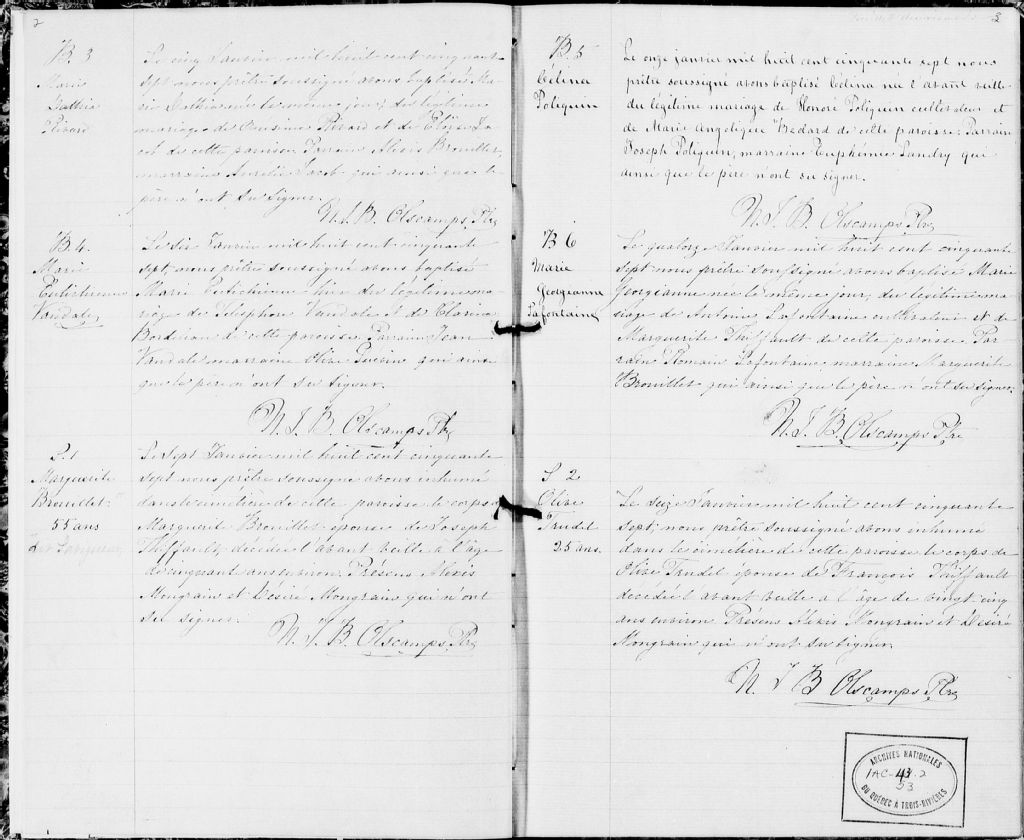 2
B 3
Marie
Rivard
Le cinq Janvier mil huit cent cinquante
sept nous prêtre soussigné avons baptisé Ma-
rie née le même jour, du légitime
mariage de Onésime Rivard et de Eloïse Ja-
cob de cette paroisse Parrain Alexis Brouillet,
marraine Aurélie Jacob qui ainsi que le
père n'ont su signer.
N. J. B. Olscamps, Ptre
B 4.
Marie
Vandale
Le six Janvier mil huit cent cinquante
sept, nous prêtre soussigné avons baptisé
Marie hier du légitime ma-
riage de Télesphore Vandale et de Clarisse
de cette paroisse Parrain Jean
Vandale marraine Olive qui ainsi
que le père n'ont su signer.
N. J. B. Olscamps Ptre
S. 1
Marguerite
Brouillet
55 ans
Le sept Janvier mil huit cent cinquante
sept nous prêtre soussigné avons inhumé
dans le cimetière de cette paroisse le corps de
Marguerit Brouillet épouse de Joseph
Thiffault, décédée l'avant veille à l'âge
de cinquant ans environ. Présens Alexis
Mongrain et Désiré Mongrain qui n'ont
su signer.
N. J. B. Olscamps, Ptre
3
B. 5
Célina
Poliquin
Le onze janvier mil huit cent cinquante sept nous
prêtre soussigné avons baptisé Célina née l'avant veille
du légitime mariage de Honoré Poliquin cultivateur et
de Marie Angélique Bedard de cette paroisse: Parrain
Joseph Poliquin, marraine Euphémie Landry qui
ainsi que le père n'ont su signer.
N. J. B. Olscamps Ptre
B 6
Marie
Georgeanne
Lafontaine
Le quatorze Janvier mil huit cent cinquante
sept nous prêtre soussigné avons baptisé Marie
Georgianne née le même jour, du légitime ma-
riage de Antoine Lafontaine cultivateur et de
Marguerite Thiffault de cette paroisse Par-
rain Romain Lafontaine, marraine Marguerite
Brouillet qui ainsi que le père n'ont su signer.
N. J. B. Olscamps Ptre
S 2
Olive
Trudel
25 ans.
Le seize Janvier mil huit cent cinquante
sept, nous prêtre soussigné avons inhumé
dans le cimetière de cette paroisse le corps de
Olive Trudel épouse de François Thiffault
décédée l'avant veille à l'âge de vingt cinq
ans environ. Présens Alexis Mongrain et Désiré
Mongrain qui n'ont su signer.
N. J. B Olscamps Ptre
ARCHIVES NATIONALES
1AC-43.2
53
DU QUÉBEC À TROIS-RIVIÈRES